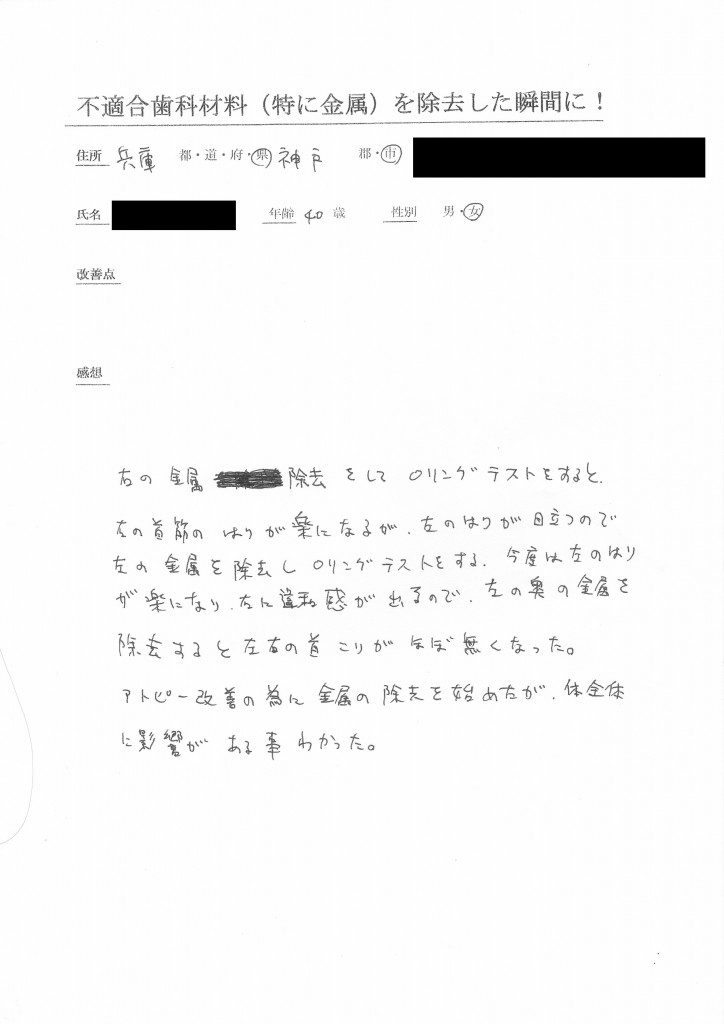 不適合歯科材料（特に金属）を除去した瞬間に！
住所 兵庫 都・道・府・県 神戸 郡・市
氏名 年齢 40 歳 性別 男・女
改善点
感想
右の金属 除去をしてOリングテストをすると、
左の首筋のはりが楽になるが、左のはりが目立つので
左の金属を除去しOリングテストをする、今度は左のはり
が楽になり、右に違和感が出るので、左の奥の金属を
除去すると左右の首こりがほぼ無くなった。
アトピー改善の為に金属の除去を始めたが、体全体
に影響がある事わかった。